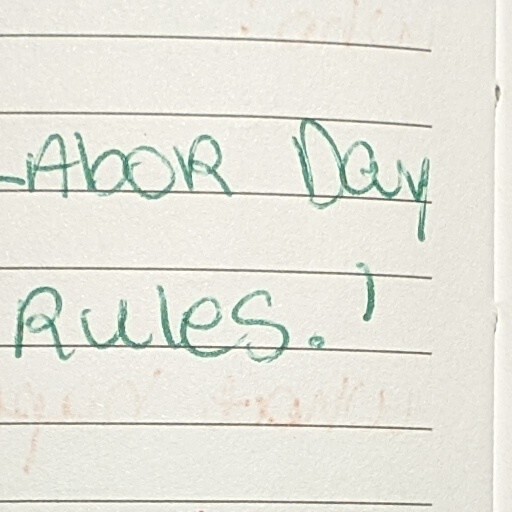 LAbOR Day
Rules.'